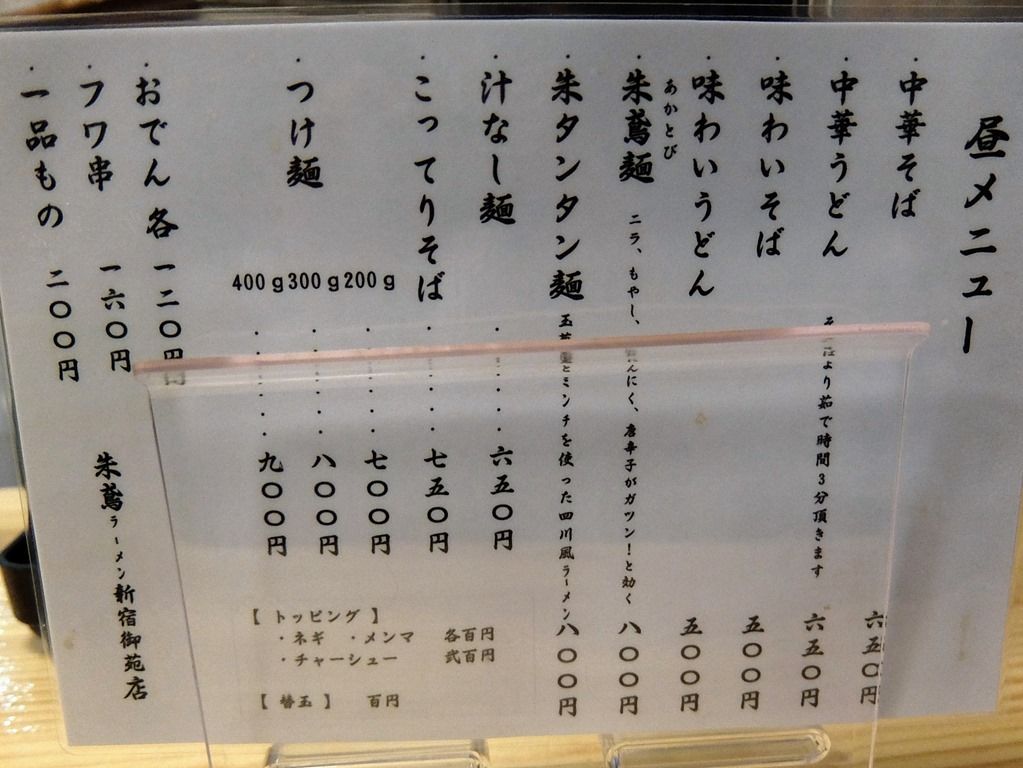 昼メニュー
・中華そば 六五〇円
・中華うどん そばより茹で時間3分頂きます 六五〇円
・味わいそば 五〇〇円
・味わいうどん 五〇〇円
あかとび
・朱鳶麺 ニラ、もやし、にんにく、唐辛子がガツン!と効く 八〇〇円
・朱タンタン麺 玉葱とミンチを使った四川風ラーメン 八〇〇円
・汁なし麺 ・・・・・ 六五〇円
・こってりそば ・・・・・ 七五〇円
・つけ麺 200g ・・・・・ 七〇〇円
300g ・・・・・ 八〇〇円
400g ・・・・・ 九〇〇円
【トッピング】
・ネギ ・メンマ 各百円
・チャーシュー 弐百円
【替玉】 百円
・おでん 各 一二〇円
・フワ串 一六〇円
・一品もの 二〇〇円
朱鳶ラーメン新宿御苑店